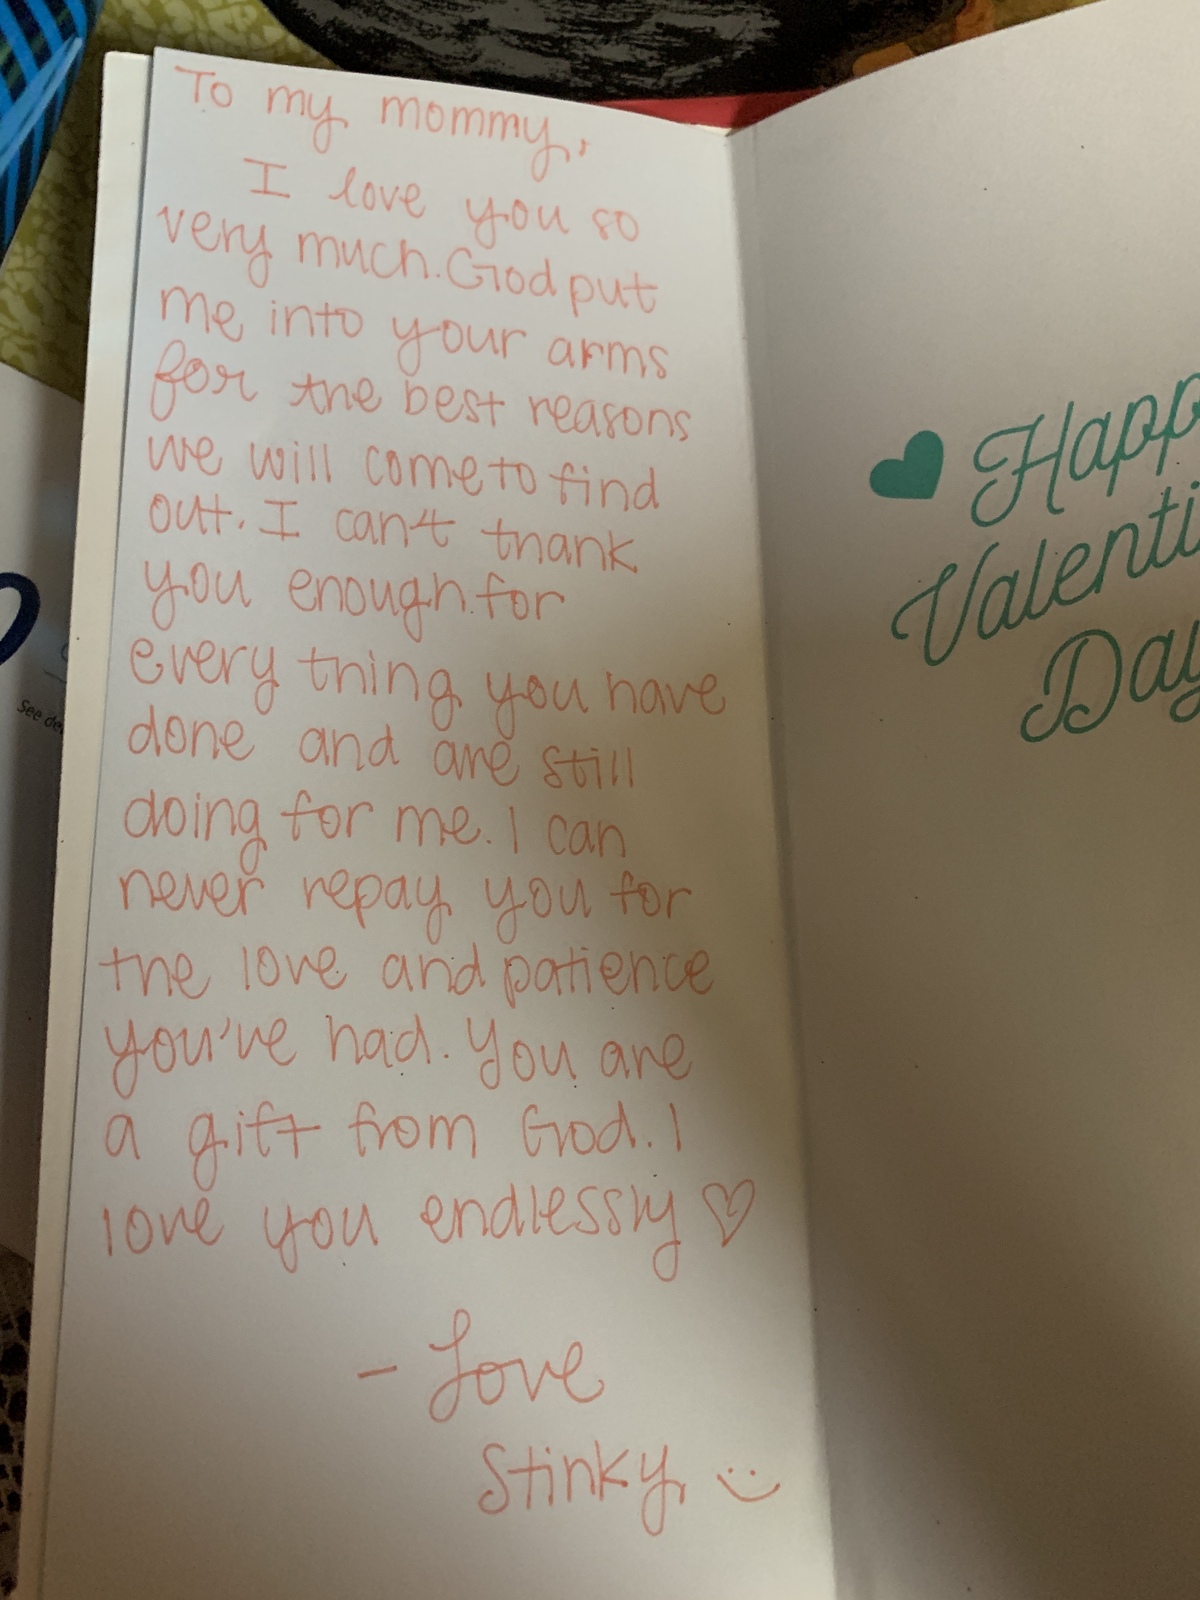 To my mommy,
I love you so
very much. God put
me into your arms
for the best reasons
we will come to find
out. I can't thank
you enough for
every thing you have
done and are still
doing for me. I can
never repay you for
the love and patience
you've had. You are
a gift from God. I
love you endlessly ♡
- Love
Stinky :)
Happ
Valenti
Day
See de